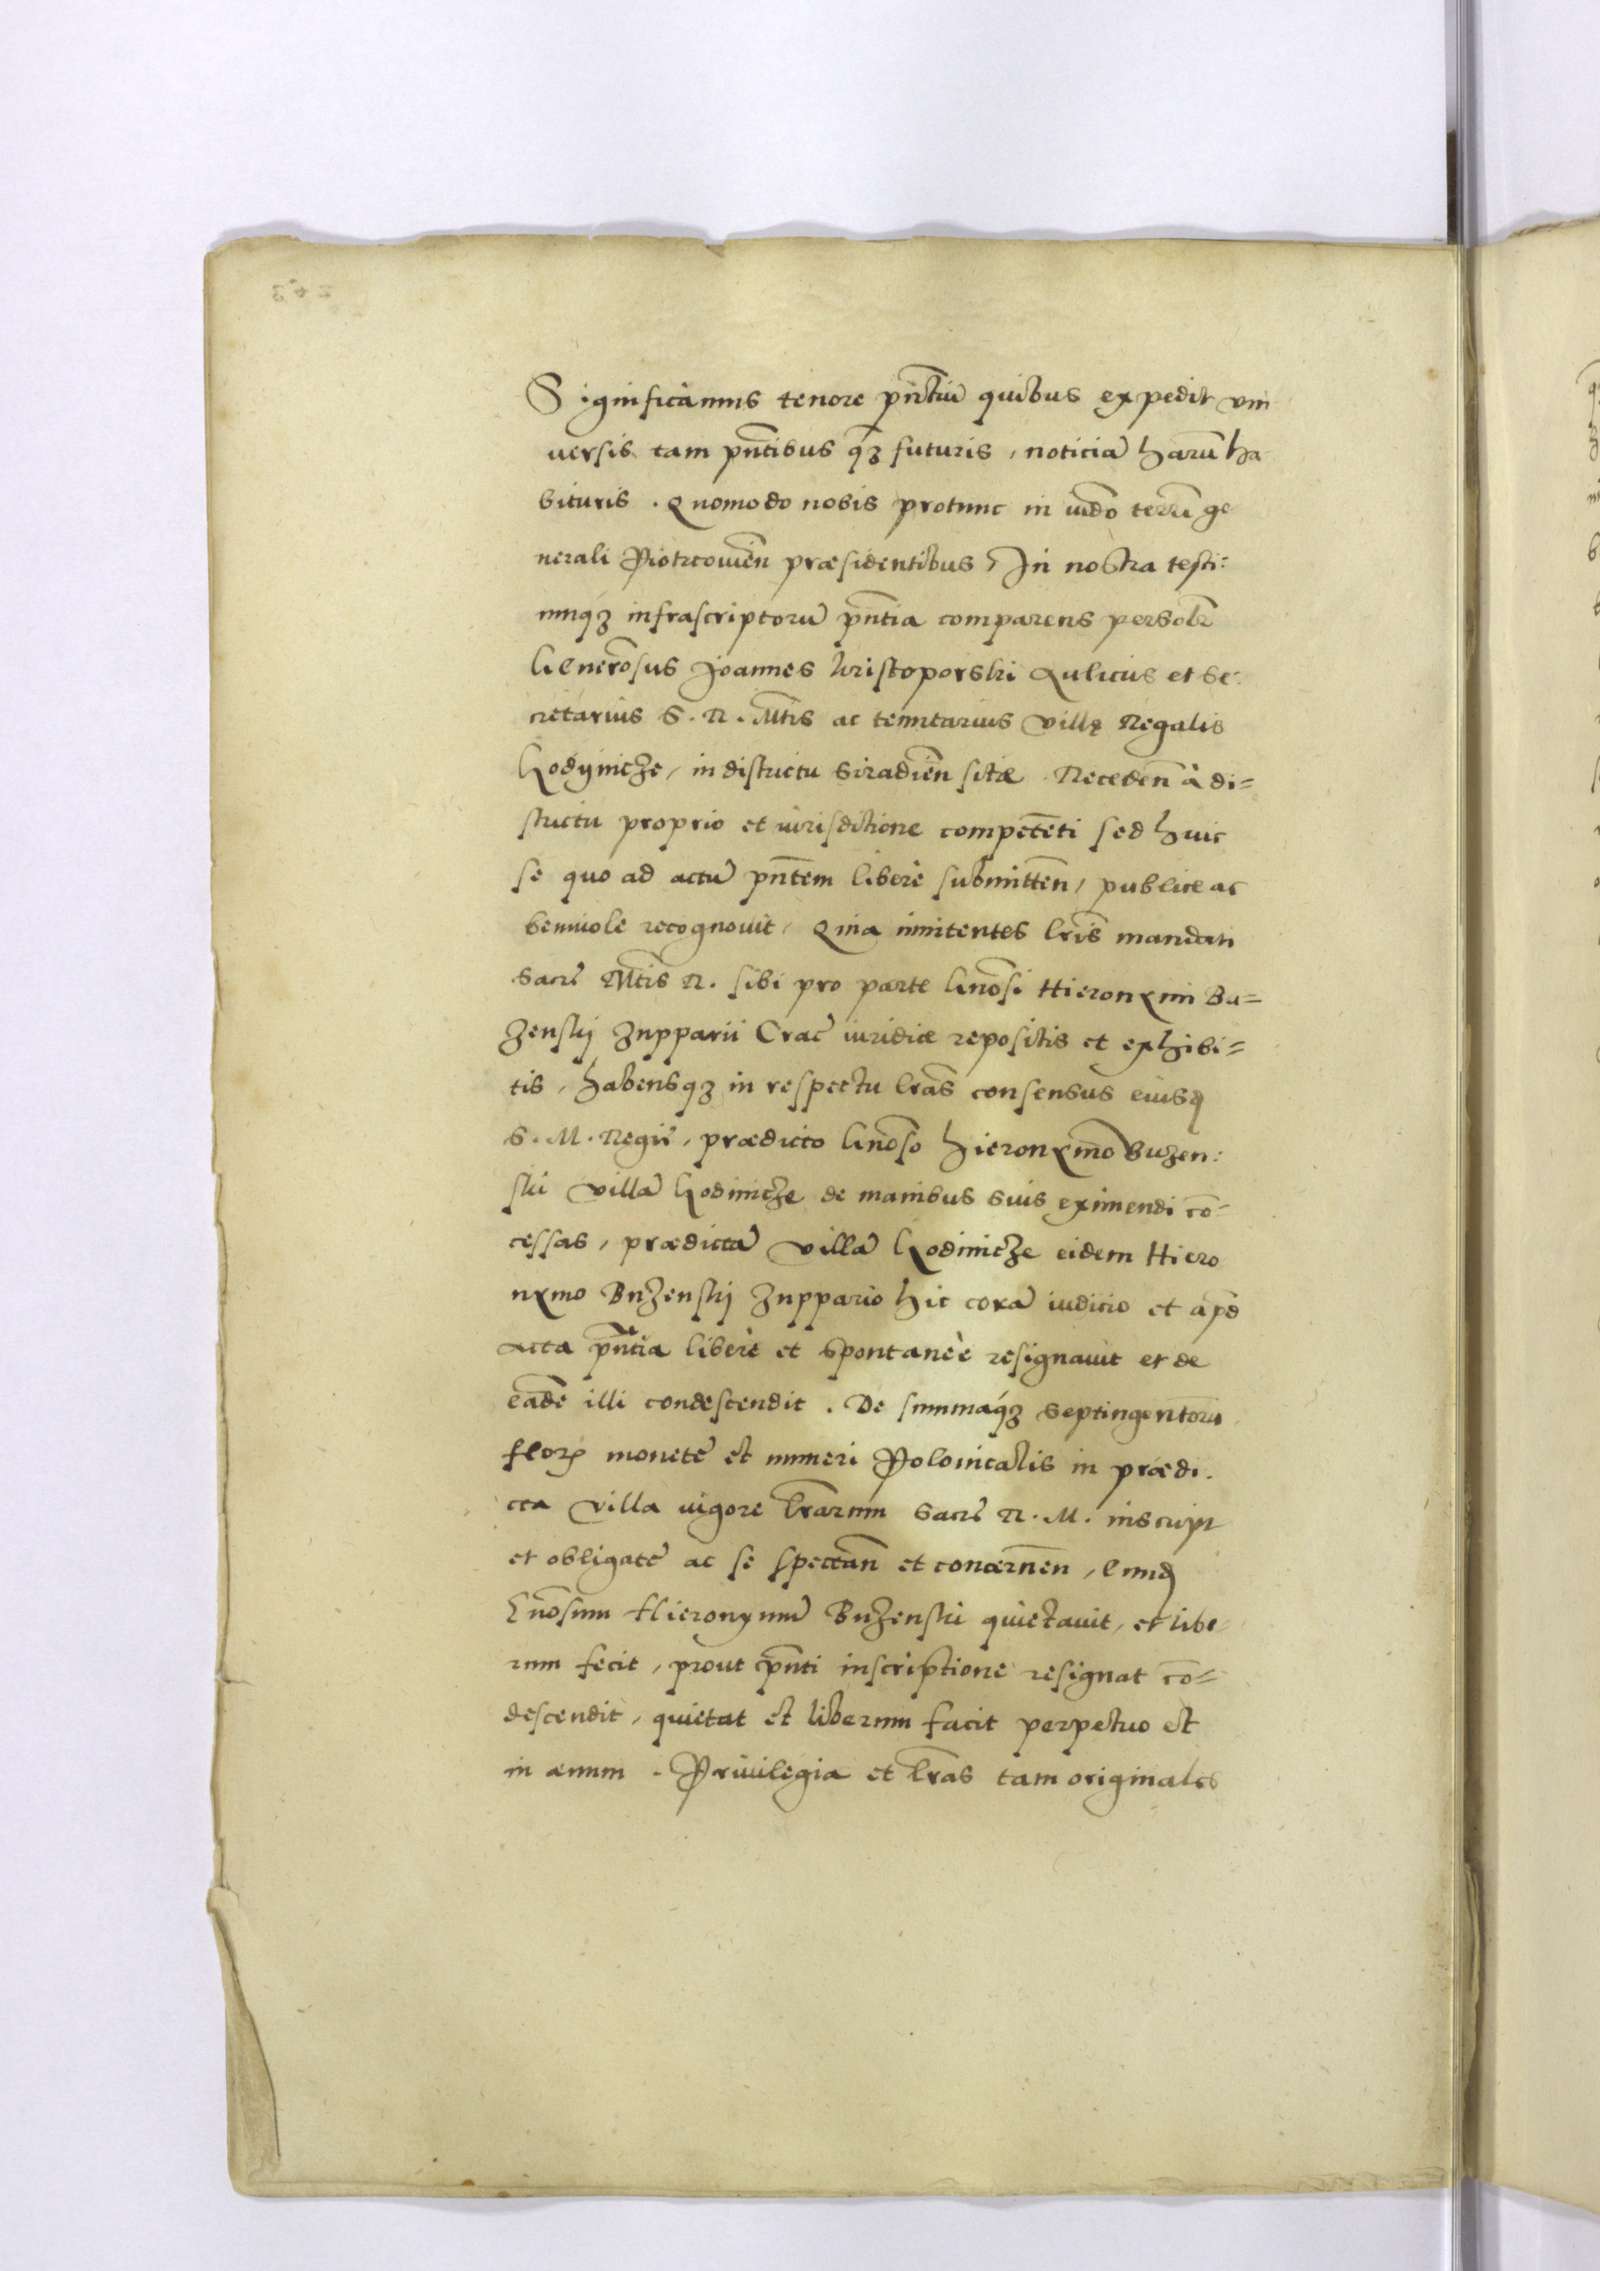 Significamus tenore pn̄tiū quibus expedit vni
uersis tam pn̄tibus q̃ꝫ futuris, noticiā harū ha
bituris. Quomodo nobis protunc in iud̄o terr̄i ge
nerali Piotrcouien̄ præsidentibus, In nostra testi:
umqꝫ infrascriptorū pn̄tia comparens personl̄r
Generosus Joannes Kristoporski Aulicus et Se:
cretarius S. R. Mt̄is ac tenutarius villę Regalis
Godÿnicze, in districtu Siradien̄ sitæ. Receden̄ à di=
strictu proprio et iurisdictione competēti sed huic
se quo ad actū pn̄tem liberè submitten̄, publice ac
beniuole recognouit, Quia innitentes lr̄is mandati
Sacrę Mt̄is R. sibi pro parte Gn̄osi Hieronymi Bu=
zenskj Zupparii Crac̄ iuridice repositis et exhibi=
tis, habensqꝫ in respectu lr̄as consensus eiusd̄
S. M. Regię, prædicto Gn̄oso Hieronymo Buzen:
ski villā Godinicze de manibus suis eximendi cō=
cessas, prædictā villā Godinicze eidem Hiero
nymo Buzenskj Zuppario hic corā iudicio et apd̄
acta pn̄tia liberè et spontaneè resignauit et de
eādē illi condescendit. De summáqꝫ septingentorū
flor̄ monetę et numeri Polonicalis in prædi.
cta villa uigore lr̄arum Sacrę R. M. inscript
et obligatę ac se spectan̄ et concernen̄, Eund̄
Gn̄osum Hieronymū Buzenski quietauit, et libe
rum fecit, prout p̄nti inscriptione resignat cō=
descendit, quietat et liberum facit perpetuo et
in æuum. Priuilegia et lr̄as tam originales